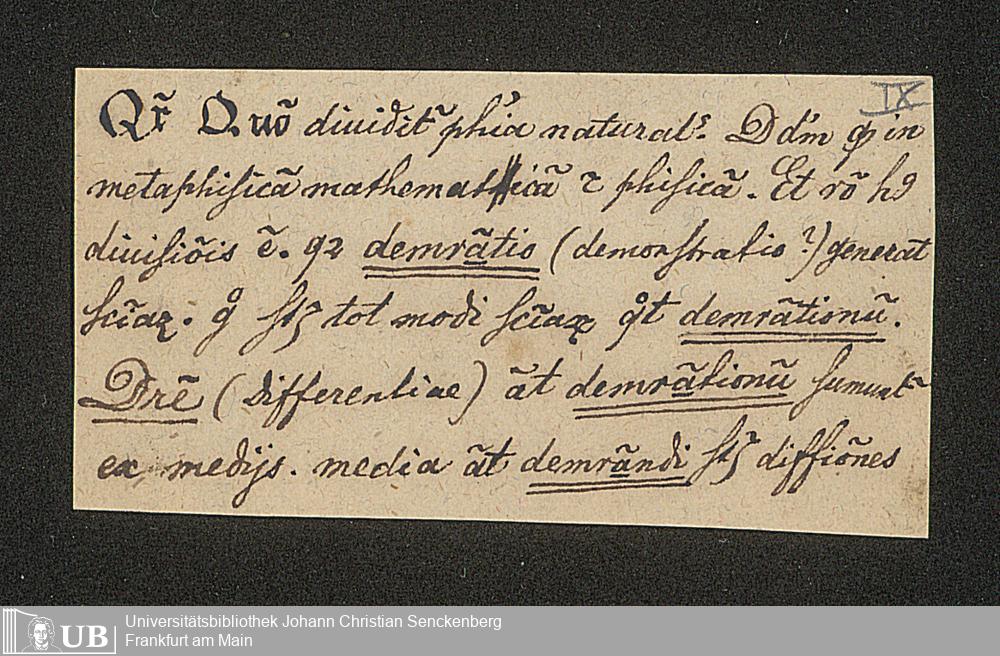 IX
Qr̃ Quõ diuidit᷑ phi̾a natural᷑. Dd̾m ꝙ in
metaphisicã mathematicã ⁊ phisicã. Et rõ hꝯ
diuisiõis ẽ. qꝛ demrãtio (demonstratio?) generat
sciãꝝ. gͦ st᷑ tot modi sciãꝝ qͦt demrãtionũ.
Drẽ (differentiae) ãt demrãtionũ sumunt᷑
ex medijs. media ãt demrãndi st᷑ diffiões
Universitätsbibliothek Johann Christian Senckenberg
UB Frankfurt am Main